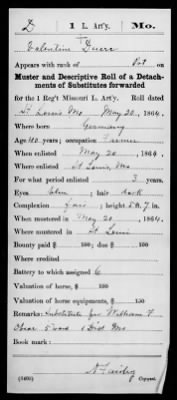 D | 1 L. Art'y. | Mo.
Valentin Duerr
Appears with rank of Pvt on
Muster and Descriptive Roll of a Detachment of Substitutes forwarded
for the 1 Reg't Missouri L. Art'y. Roll dated
St. Louis Mo May 20, 1864.
Where born Germany
Age 40 years; occupation Farmer
When enlisted May 20, 1864.
Where enlisted St Louis, Mo
For what period enlisted 3 years.
Eyes blue; hair dark
Complexion fair; height 5 ft. 7 in.
When mustered in May 20, 1864.
Where mustered in St Louis
Bounty paid $ 100; due $ 100
Where credited
Battery to which assigned C
Valuation of horse, $ 100
Valuation of horse equipments, $ 100
Remarks: Substitute for William F
5 ward 1 Dist Mo
Book mark:
Copyist.